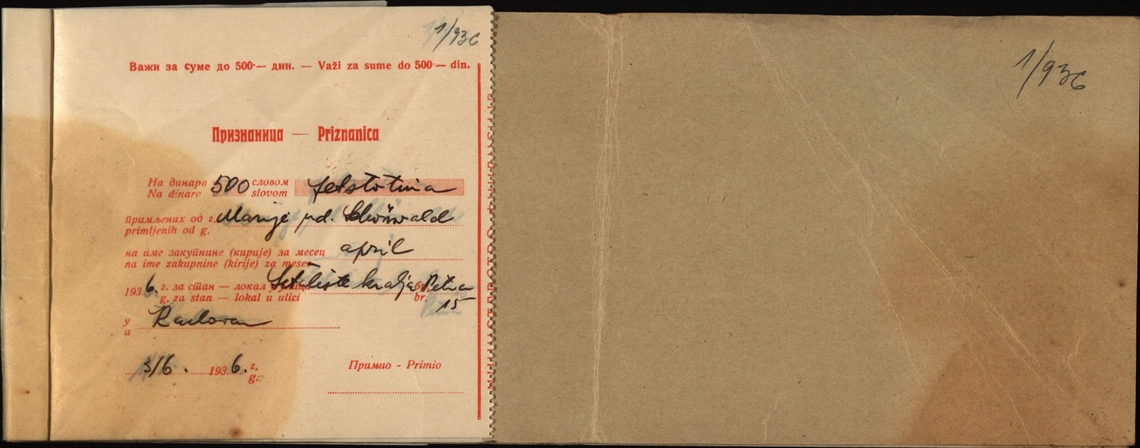 1/936
Важи за суме до 500·— дин. — Važi za sume do 500·— din.
Признаница — Priznanica
На динара 500 словом
Na dinara slovom petstotina
примљених од г. Marije ud. Schönwald
primljenih od g.
на име закупнине (кирије) за месец april
na ime zakupnine (kirije) za mesec
1936. г. за стан — локал Šetalište kralja Petra
g. za stan — lokal u ulici br. 15
у
u
3/6. 1936. г.
g.
Примио - Primio
1/936